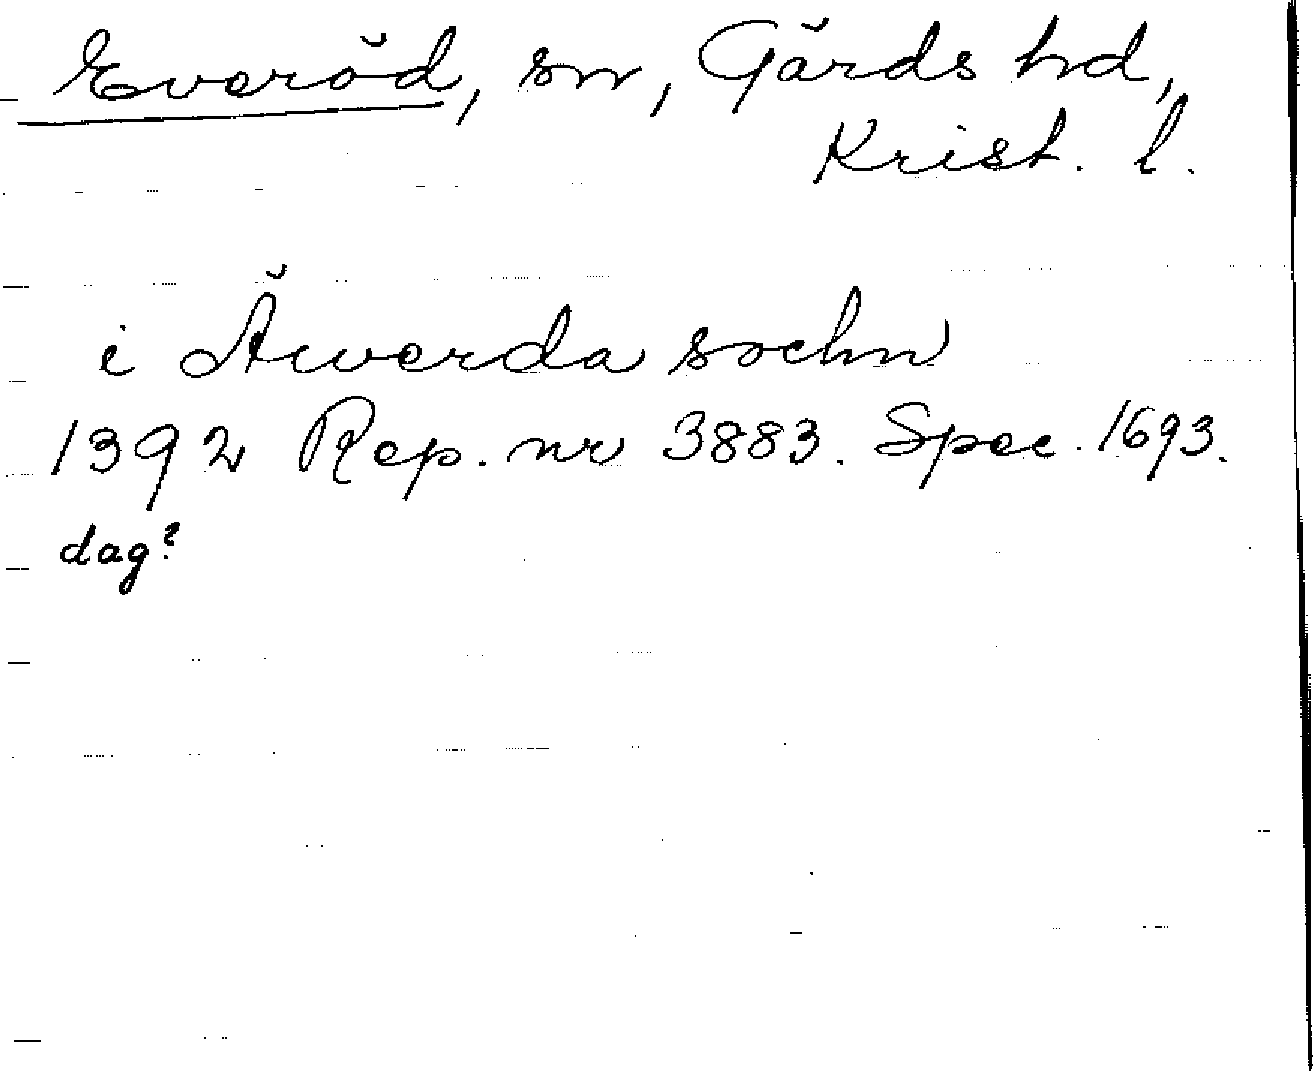 Everöd, sn, Gärds hd,
Krist. l.
i Äwerda sochn
1392 Rep. nr 3883. Spec. 1693.
dag?